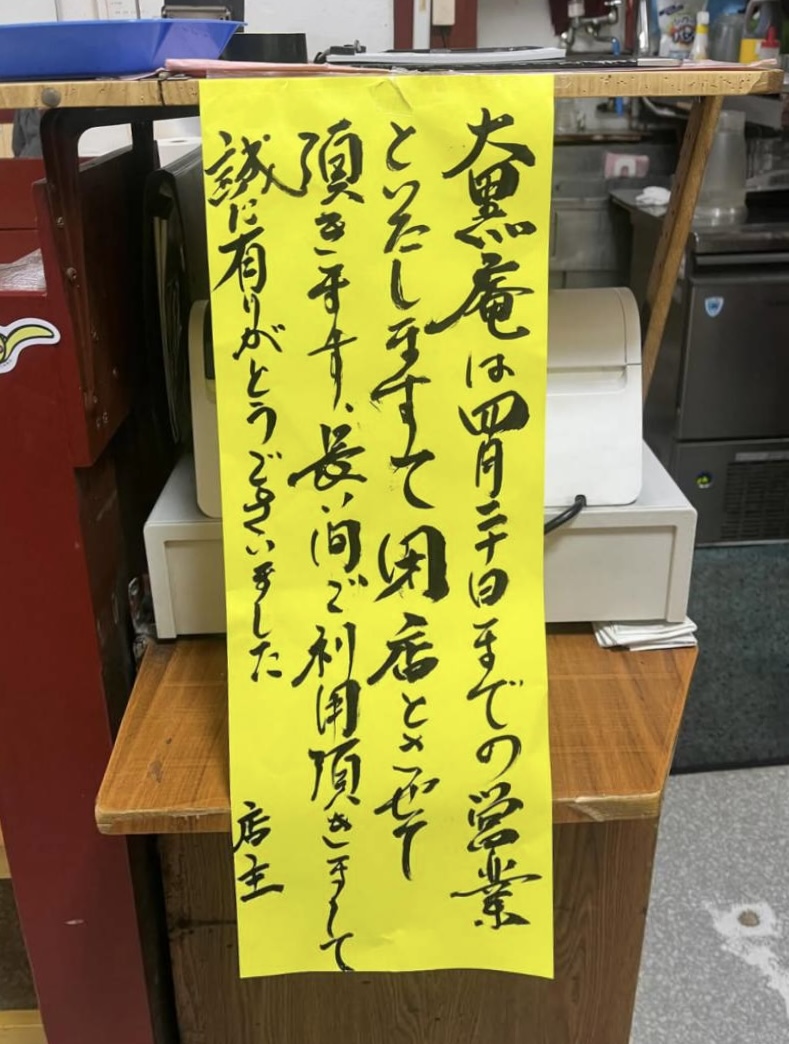 大黒庵は四月二十日までの営業
といたしますて閉店とさせて
頂きます、長い間ご利用頂きまして
誠に有りがとうございました
店主